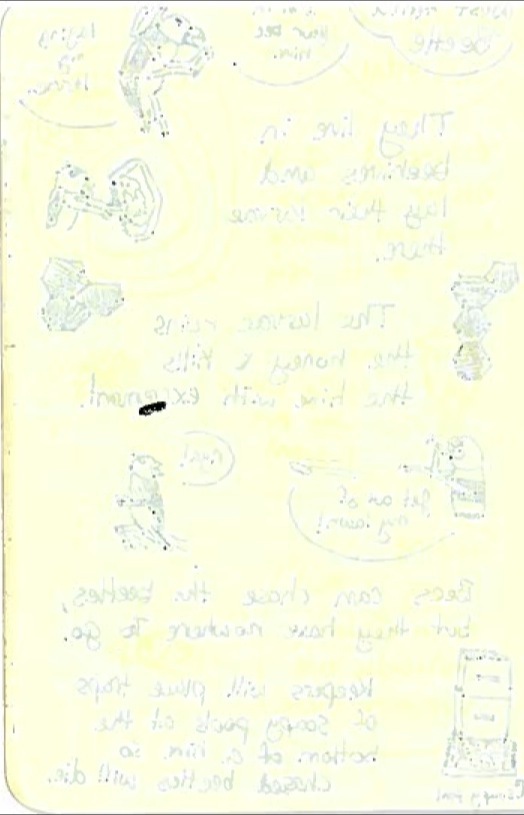 Beetle
your bee
hive.
laying
They live in
beehives and
lay their larvae
there.
The larvae ruins
the honey & kills
the hive with excrement.
Ugh!
get off of
my lawn!
Bees can chase the beetles,
but they have nowhere to go.
Keepers will place traps
of soapy pools at the
bottom of a hive so
chased beetles will die.